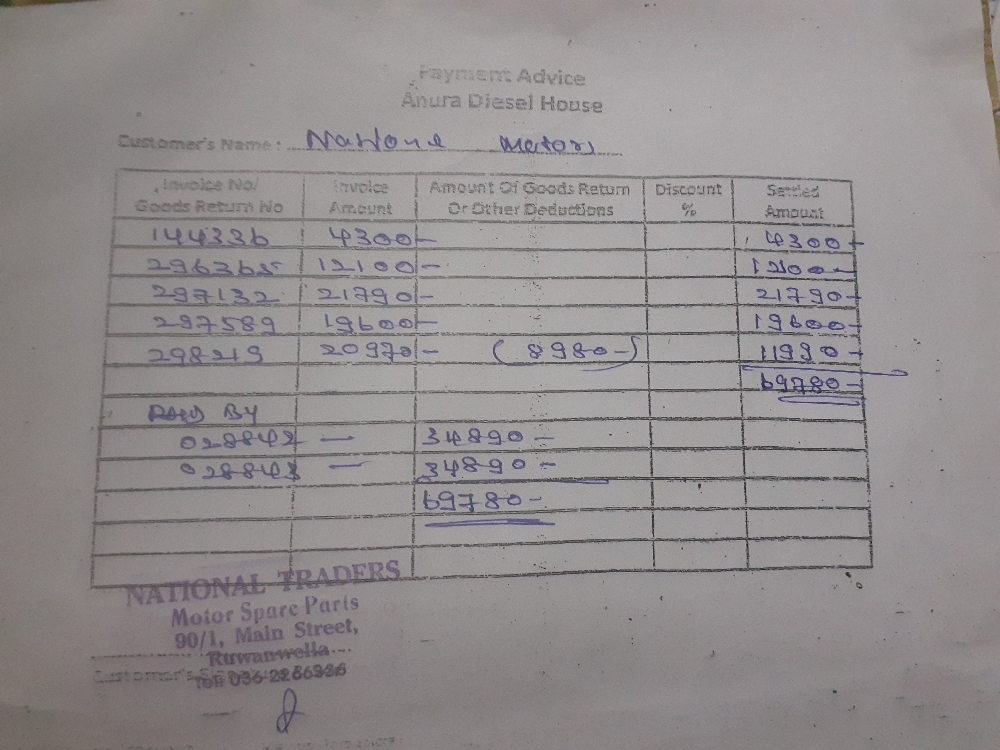 Payment Advice
Anura Diesel House
Customer's Name: Motors
Invoice No/ Goods Return No Invoice Amount Amount Of Goods Return Or Other Deductions Discount % Settled Amount
144336 4300/- 4300/-
296365 12100/- 12100/-
297132 21790/- 21790/-
297589 19600/- 19600/-
298219 20970/- (8980-) 11990/-
69780-
Paid By
028842 — 34890-
028843 — 34890-
69780-
NATIONAL TRADERS
Motor Spare Parts
90/1, Main Street,
Ruwanwella
Customer's
Tel: 036-2266326